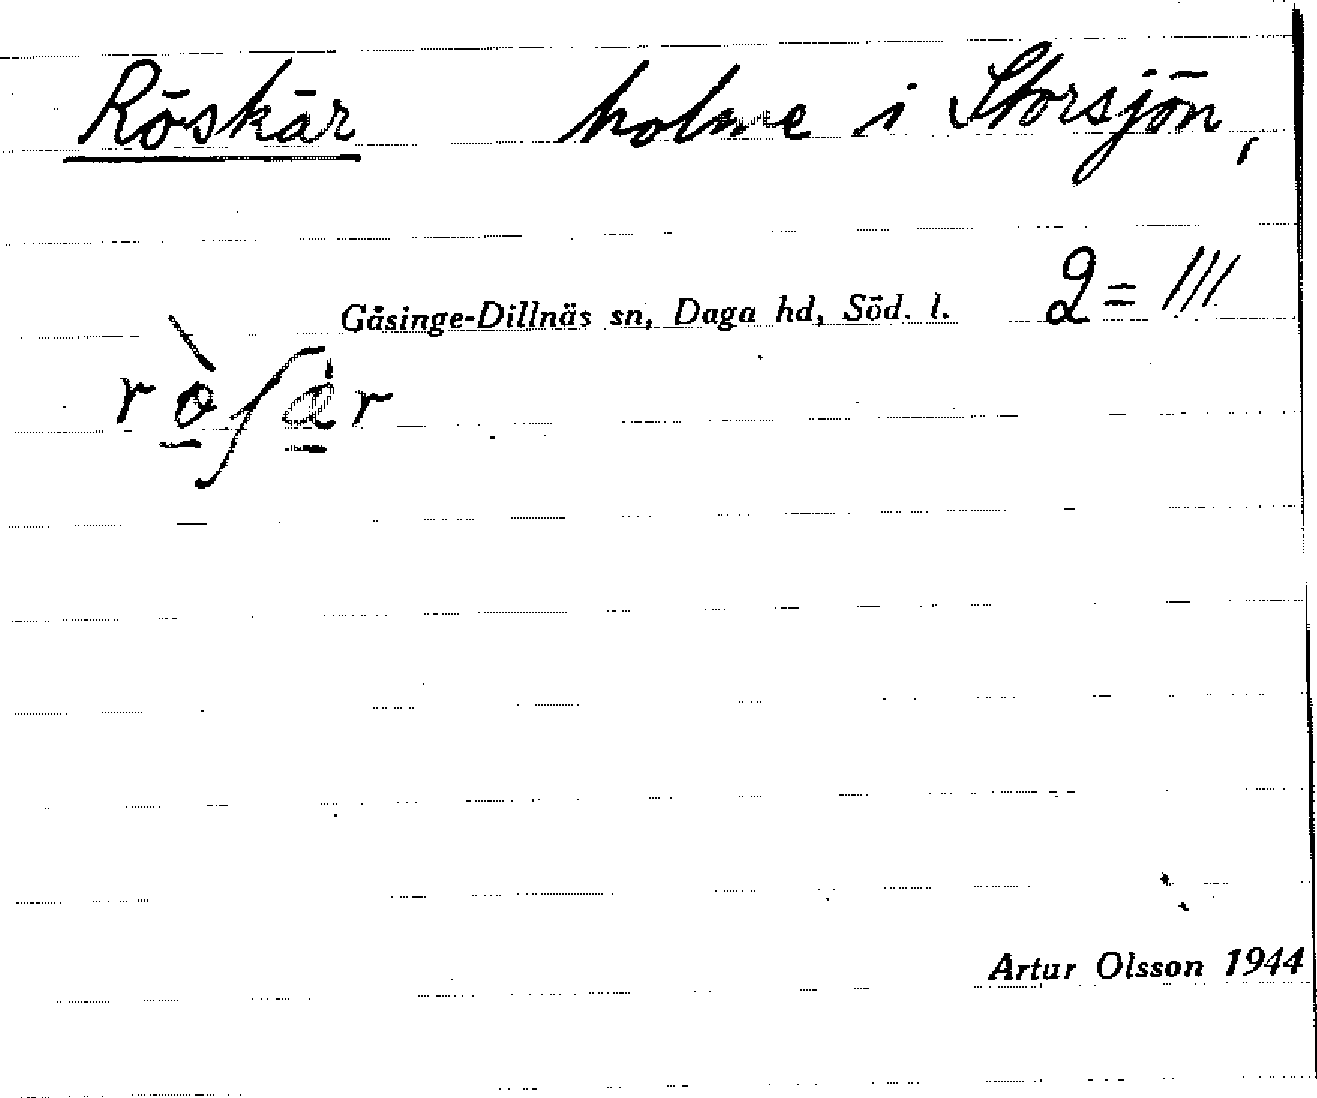 Röskär holme i Storsjön,
Gåsinge-Dillnäs sn, Daga hd, Söd. l. 2 = ///
rö̀ʃä̍r
Artur Olsson 1944